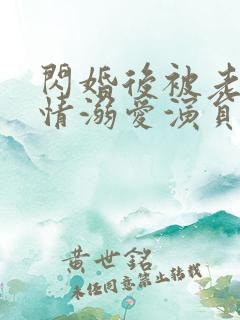 閃婚後被老
情溺愛演員
黃世銘
未經同意禁止轉載